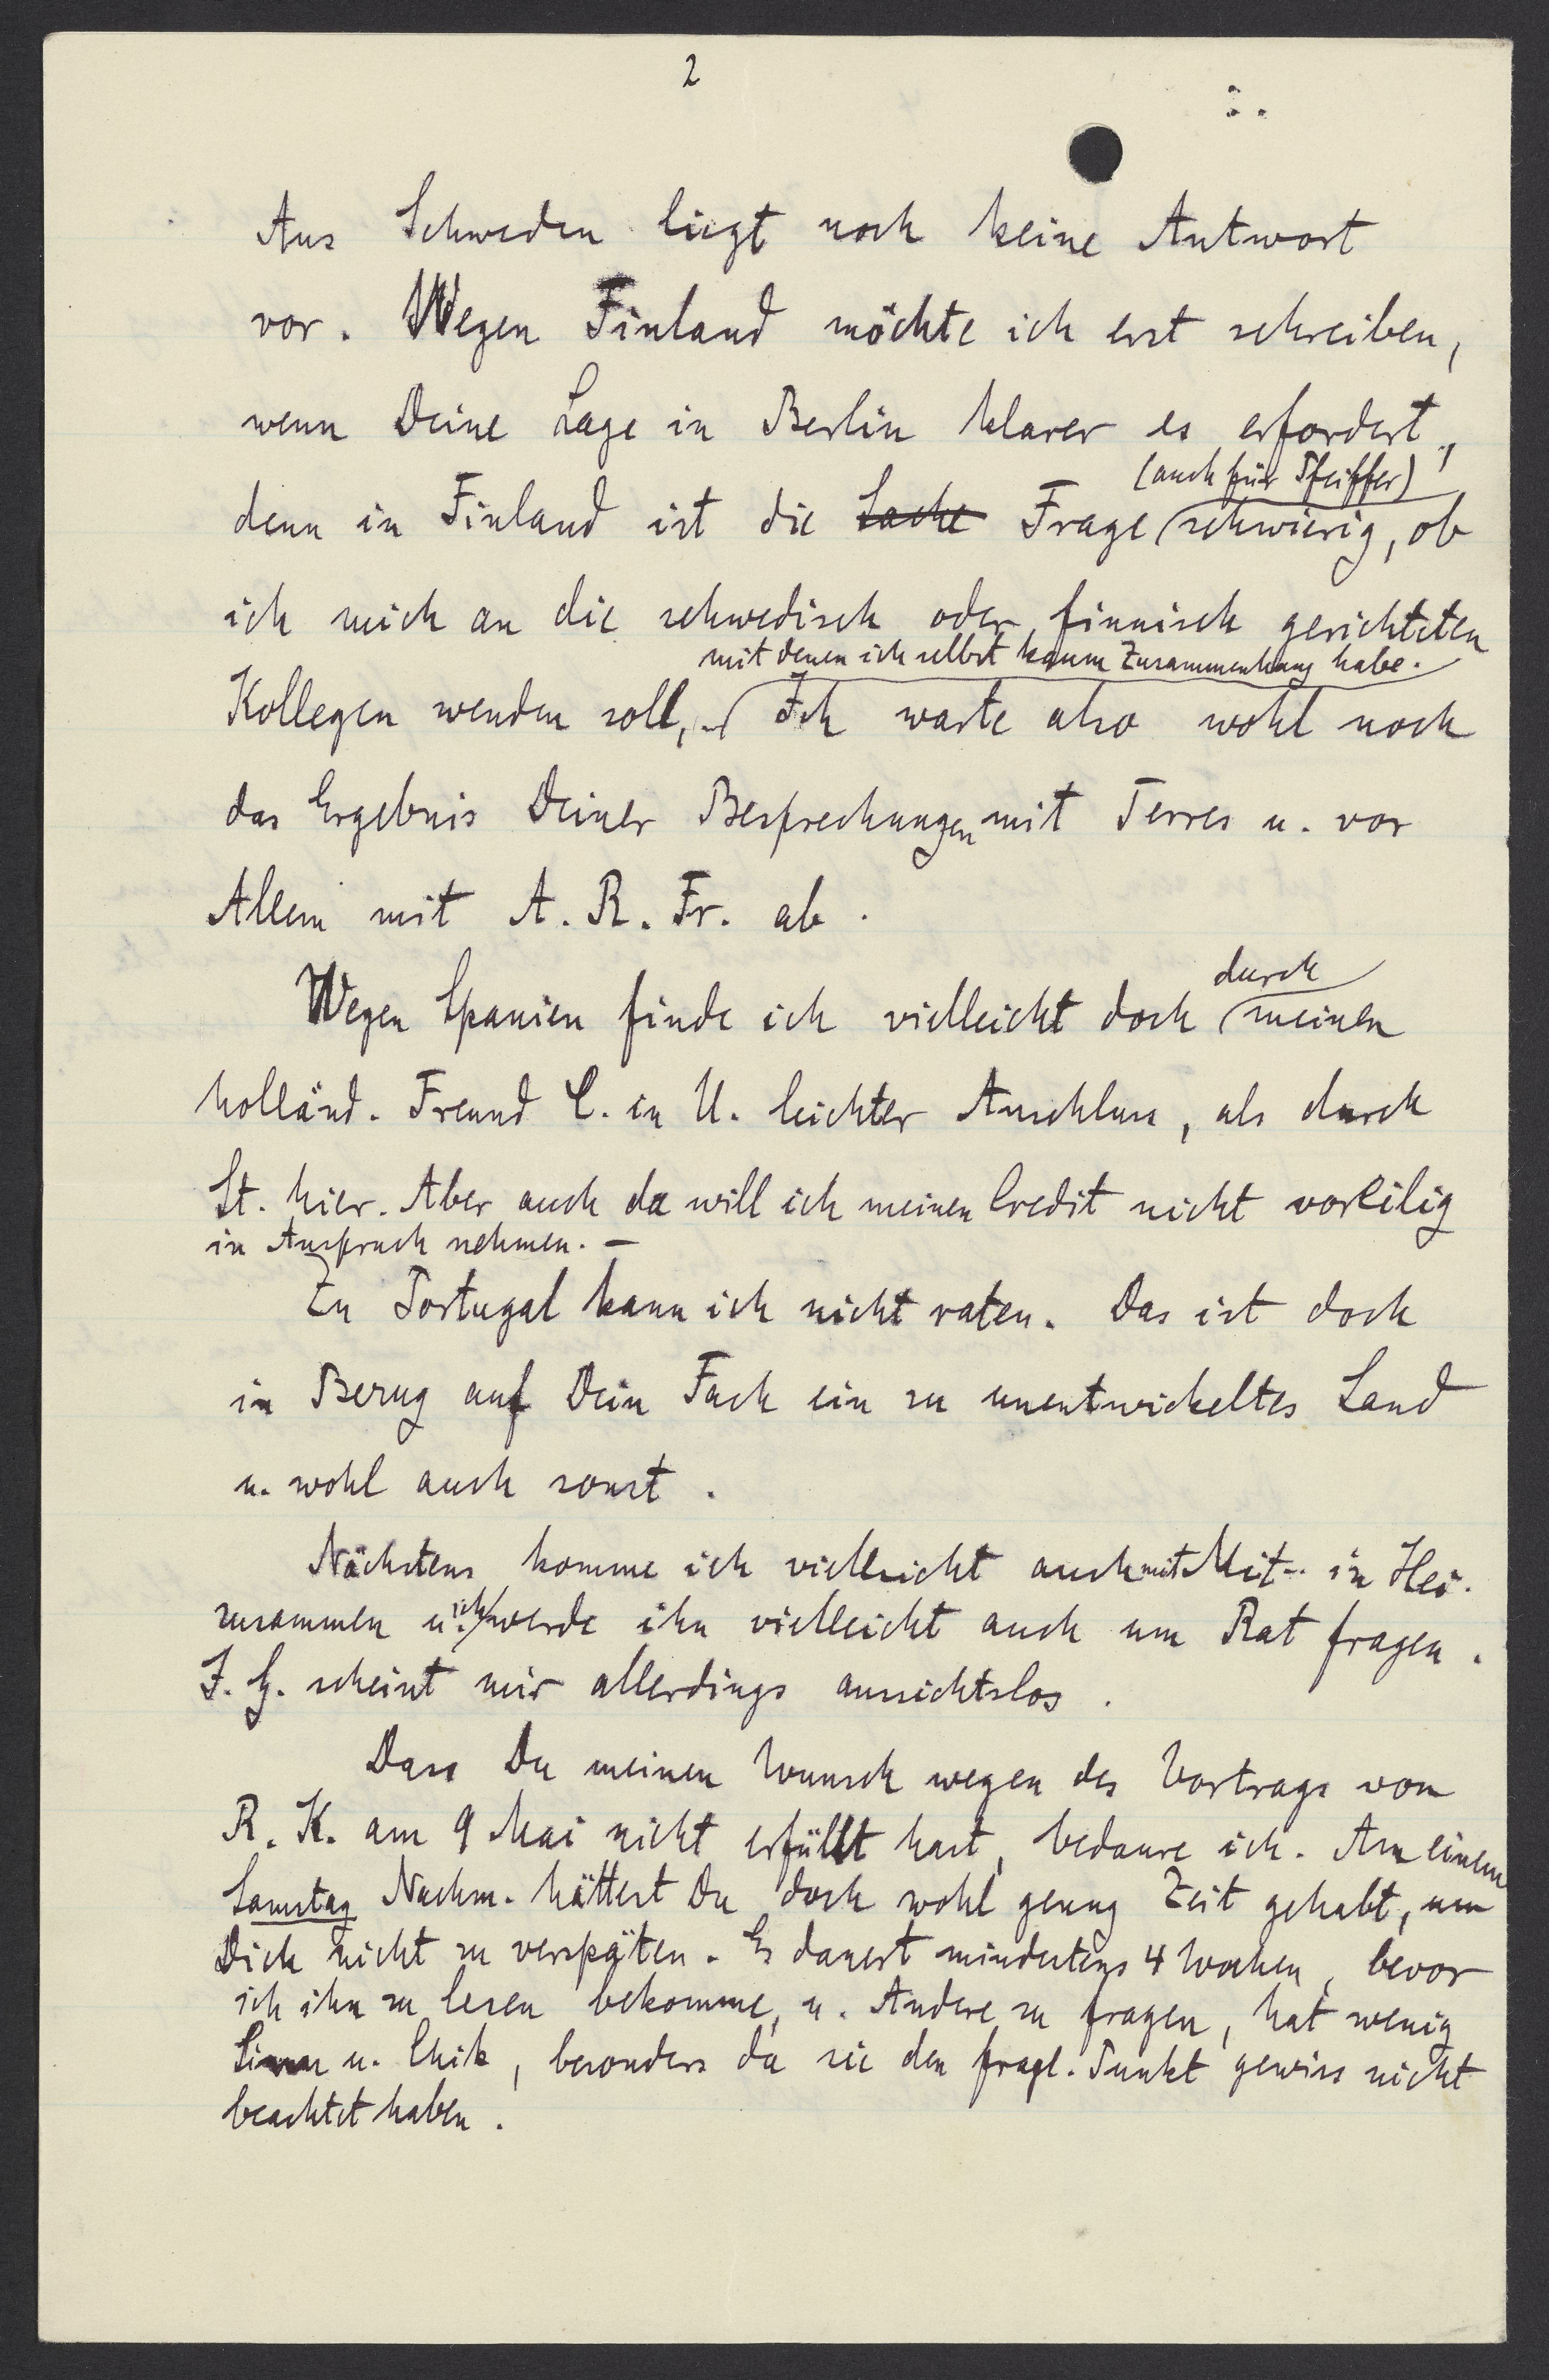 2
Aus Schweden liegt noch keine Antwort
vor. Wegen Finland möchte ich erst schreiben,
wenn Deine Lage in Berlin klarer es erfordert,
(auch für Pfeiffer)
denn in Finland ist die Sache Frage schwierig, ob
ich mich an die schwedisch oder finnisch gerichteten
mit denen ich selbst kaum Zusammenhang habe.
Kollegen wenden soll, Ich warte also wohl noch
das Ergebnis Deiner Besprechungen mit Terres u. vor
Allem mit A. R. Fr. ab.
durch
Wegen Spanien finde ich vielleicht doch meinen
holländ. Freund C. in U. leichter Anschluss, als durch
St. hier. Aber auch da will ich meinen Credit nicht voreilig
in Anspruch nehmen. –
Zu Portugal kann ich nicht raten. Das ist doch
in Bezug auf Dein Fach ein zu unentwickeltes Land
u. wohl auch sonst.
Nächstens komme ich vielleicht auch mit Mit.. in Hei.
zusammen u. ich werde ihn vielleicht auch um Rat fragen.
I. G. scheint mir allerdings aussichtslos.
Dass Du meinen Wunsch wegen des Vortrags von
R. K. am 9 Mai nicht erfüllt hast, bedaure ich. An einem
Samstag Nachm. hättest Du doch wohl genug Zeit gehabt, um
Dich nicht zu verspäten. Es dauert mindestens 4 Wochen, bevor
ich ihn zu lesen bekomme, u. Andere zu fragen, hat wenig
Sinn u. Chik, besonders da sie den fragl. Punkt gewiss nicht
beachtet haben.